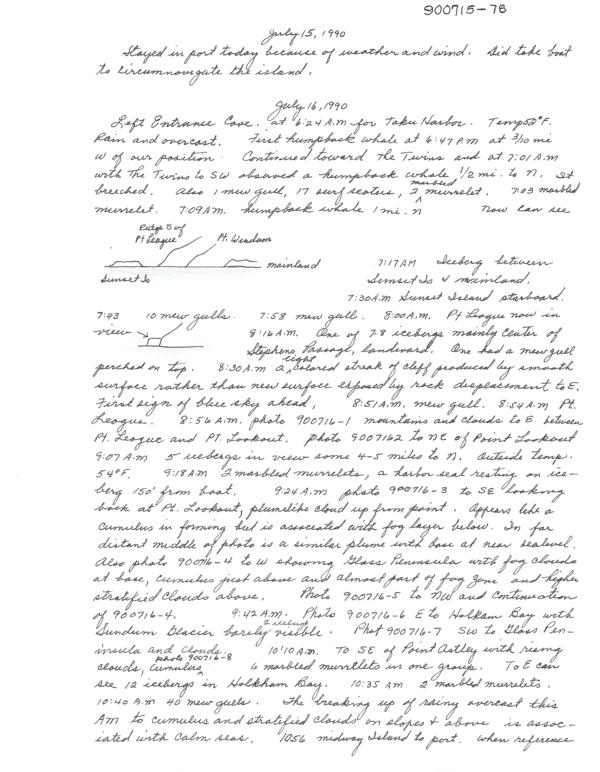 900715-7B
July 15, 1990
Stayed in port today because of weather and wind. Did take boat
to circumnavigate the island.
July 16, 1990
Left Entrance Cove. at 6:24 A.M for Taku Harbor. Temp 52°F.
Rain and overcast. First humpback whale at 6:47 AM at 3/10 mi
W of our position. Continued toward the Twins and at 7:01 AM
with the Twins to SW observed a humpback whale 1/2 mi. to N. It
breeched. Also 1 mew gull, 17 surf scoters, 2 marbled murrelet. 7:03 marbled
murrelet. 7:09 AM. humpback whale 1 mi. N Now can see
Ridge S of
Pt League Pt. Windum
mainland
Sunset Is
7:17 AM Iceberg between
Sunset Is & mainland.
7:30 A.M Sunset Island starboard.
7:43 10 mew gulls. 7:58 mew gull. 8:00 A.M. Pt League now in
view 8:16 A.M. One of 7-8 icebergs mainly center of
Stephens Passage, landward. One had a mew gull
perched on top. 8:30 A.M a light colored streak of cliff produced by smooth
surface rather than new surface exposed by rock displacement to E.
First sign of blue sky ahead, 8:51 A.M. mew gull. 8:54 A.M Pt.
League. 8:56 A.M. photo 900716-1 mountains and clouds to E between
Pt. League and PT. Lookout. photo 9007162 to NE of Point Lookout
9:07 A M 5 icebergs in view some 4-5 miles to N. Outside temp.
54°F. 9:18 AM 2 marbled murrelets, a harbor seal resting on ice-
berg 150' from boat. 9:24 A.M photo 900716-3 to SE looking
back at Pt. Lookout, plumelike cloud up from point. Appears like a
cumulus in forming but is associated with fog layer below. In far
distant middle of photo is a similar plume with base at near sealevel.
Also photo 900716-4 to W showing Glass Peninsula with fog clouds
at base, cumulus just above and almost part of fog zone and higher
stratified clouds above. Photo 900716-5 to NW and continuation
of 900716-4. 9:42 A.M. Photo 900716-6 E to Holkam Bay with
2 icebergs
Sundum Glacier barely visible. Phot 900716-7 SW to Glass Pen-
insula and Clouds. 10:10 A.M. TO SE of Point Astley with rising
clouds, cumulus photo 900716-8 6 marbled murrelets in one group. To E can
see 12 icebergs in Holkham Bay. 10:35 AM 2 marbled murrelets.
10:40 A.M 40 mew gulls. The breaking up of rainy overcast this
AM to cumulus and stratified clouds on slopes & above is assoc-
iated with calm seas. 1056 midway Island to port. when reference